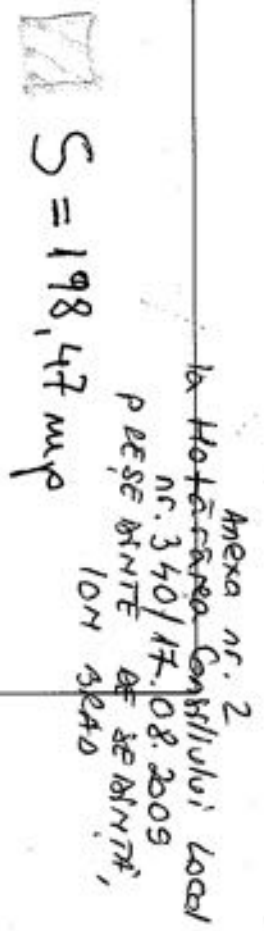 Anexa nr. 2
la Hotărârea Consiliului Local
nr. 340/17.08.2009
PREȘEDINTE DE ȘEDINȚĂ,
ION BRAD
S = 198,47 mp